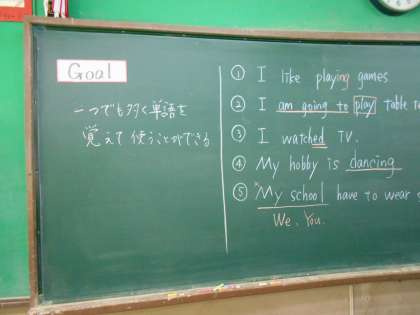 Goal
一つでも多く単語を
覚えて使うことができる
① I like playing games
② I am going to play table
③ I watched TV.
④ My hobby is dancing
⑤ My school have to wear
We. You.